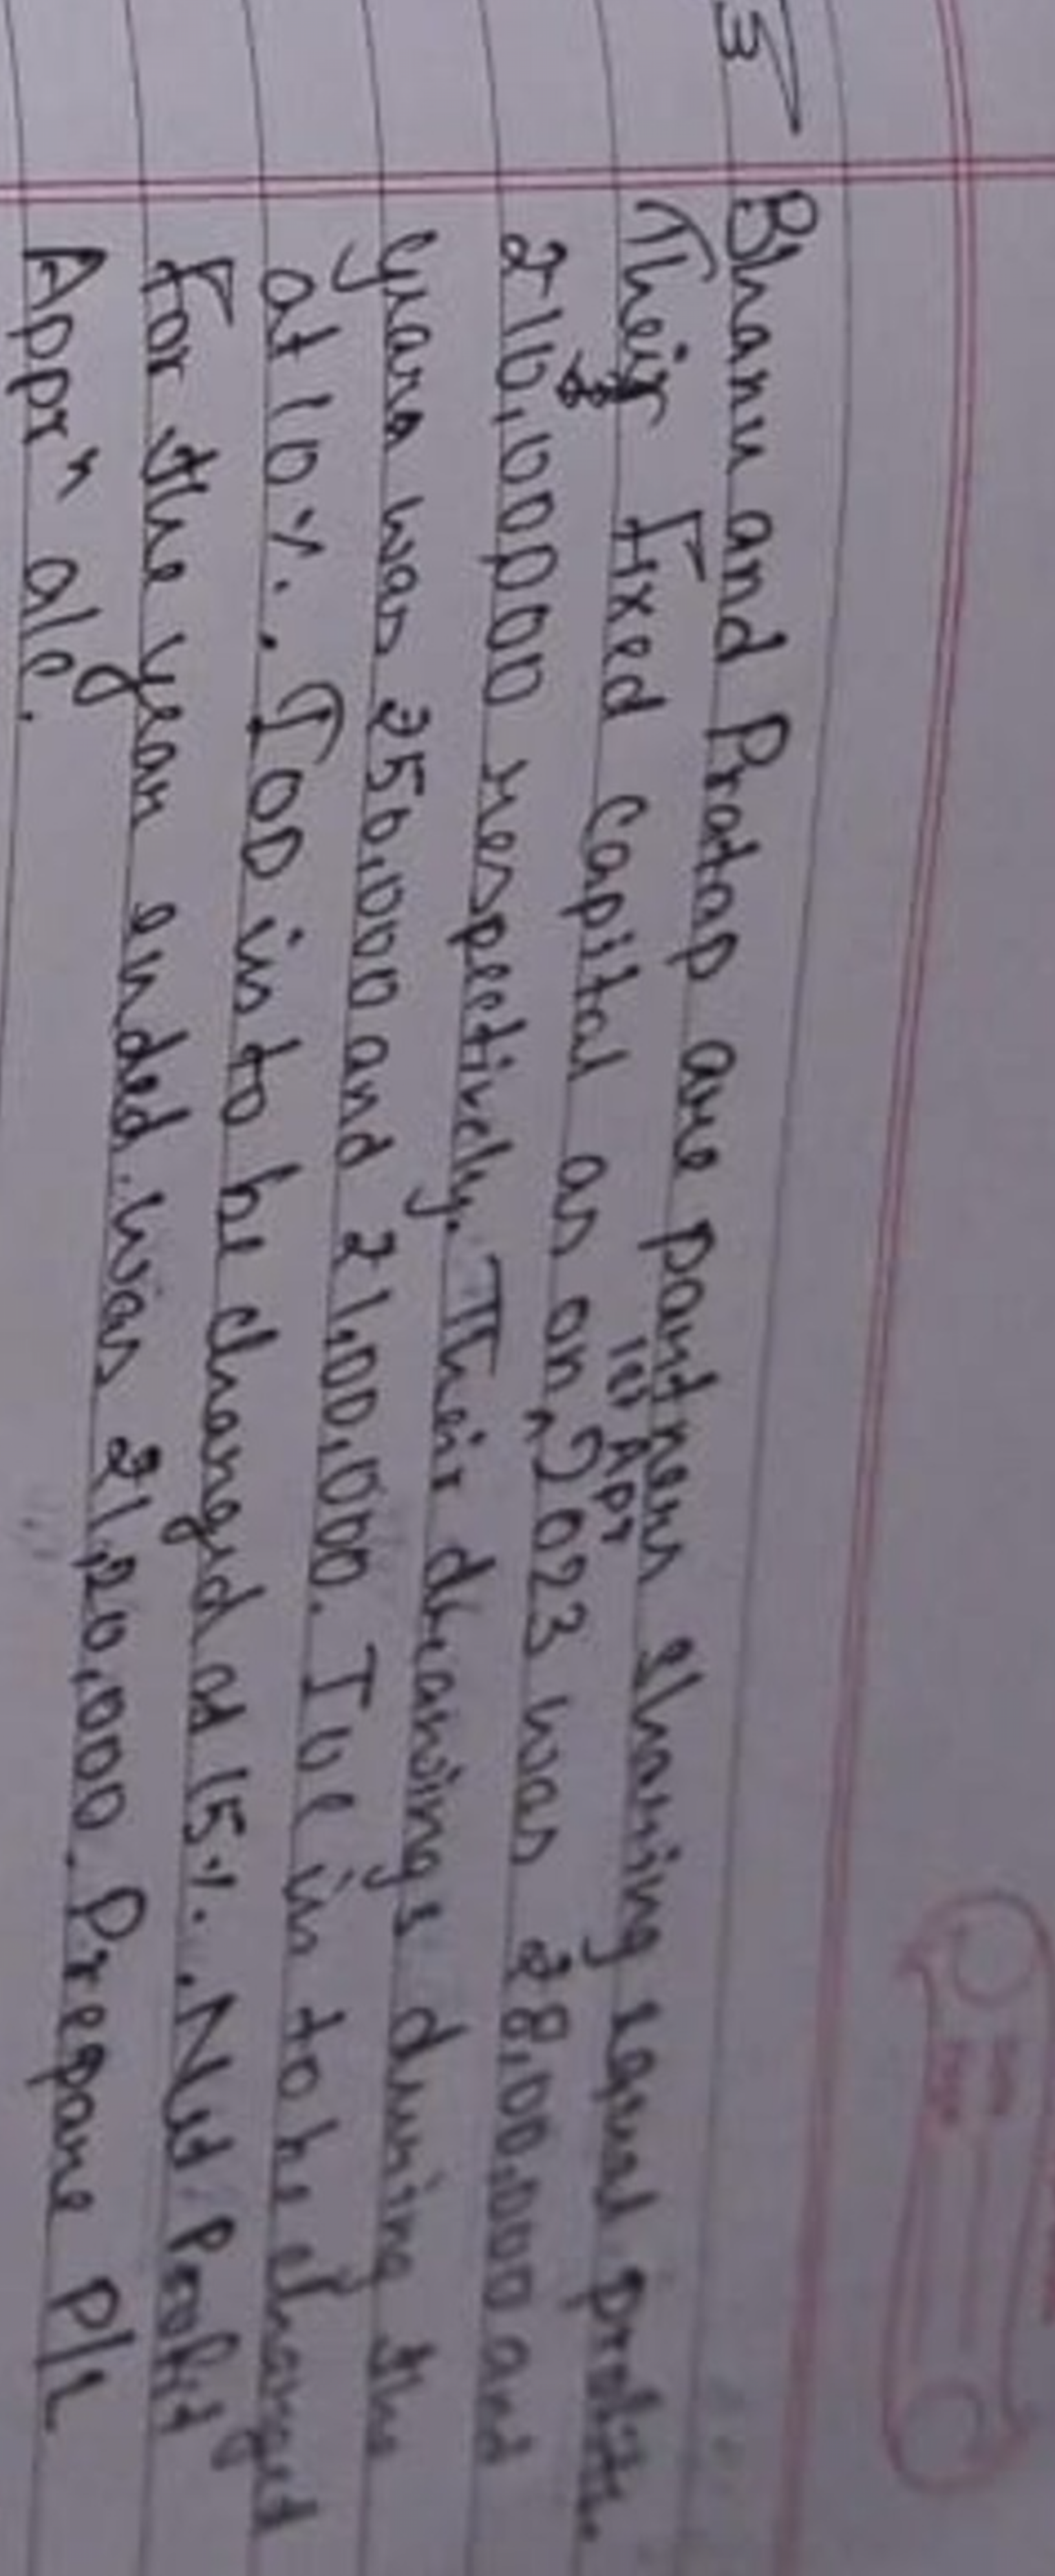 3
Bhanu and Pratap are partners sharing equal profits.
Their Fixed Capital as on 1st Apr 2023 was ₹8,00,000 and
₹10,00,000 respectively. Their drawings during the
year was ₹50,000 and ₹1,00,000. IOC is to be charged
at 10%. IOD is to be charged at 15%. Net Profit
For the year ended was ₹1,20,000. Prepare P/L
Apprⁿ a/c.